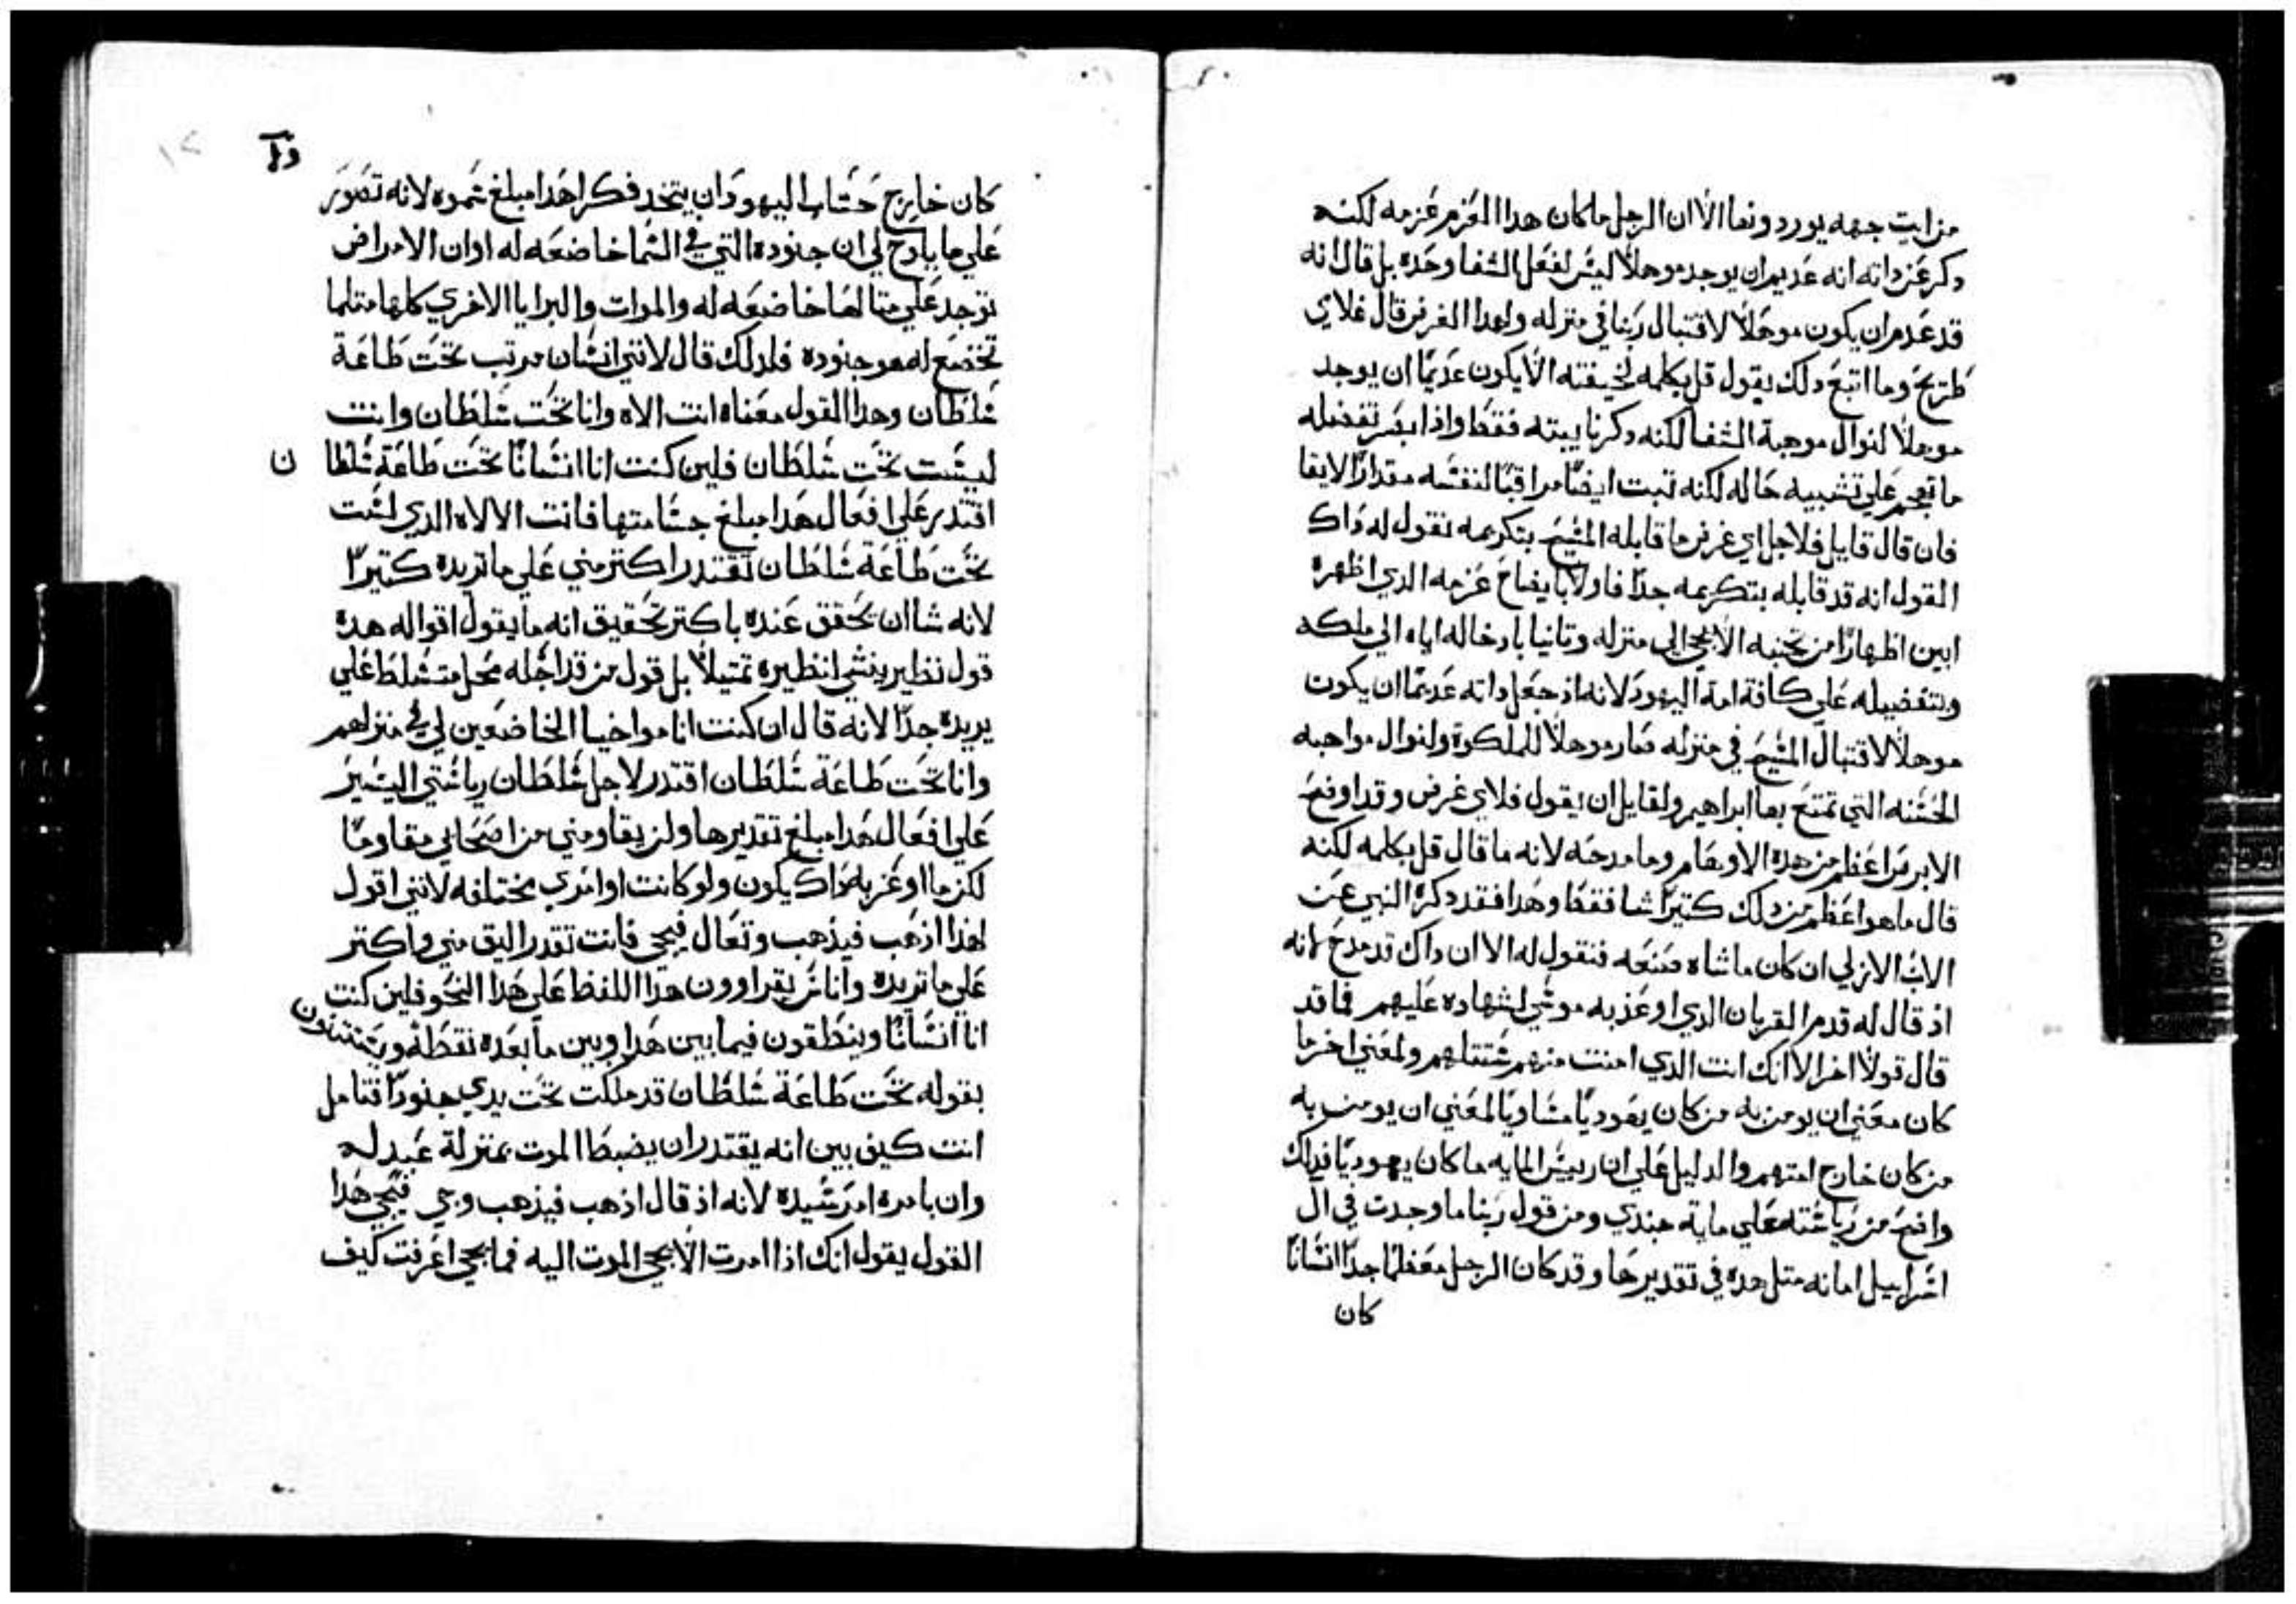 من ايت جهه يوردونها الا ان الرجل ما كان هدا العزم عزمه لكنه
دكر عن داته انه عديم ان يوجد موهلاً ليس لفعل الشفا وحده بل قال انه
قد عدم ان يكون موهلاً لاقتبال ربنا في منزله ولهدا الغرض قال فلاي
طريح وما اتبع دلك بقول قل بكلمه لخيفته الا يكون عديماً ان يوجد
موهلاً لنوال موهبة الشفا لكنه دكر نا بيته فقط واذا ابصر تفضله
ما تهجم علي تشبيه حاله لكنه تبت ايضاً مراقباً لنفسه مقداراً لايقا
فان قال قايل فلاجل اي غرض ما قابله المسيح بتكريمه نقول له داك
القول انه قد قابله بتكريمه جداً فاولاً بايضاح عزمه الدي اظهره
ابين اظهاراً من تجنبه الا يجي الي منزله وتانيا بادخاله اياه الي ملكه
وبتفضيله علي كافة امة اليهود لانه اذ جعل داته عديماً ان يكون
موهلاً لاقتبال المسيح في منزله صار موهلاً للملكوة ولنوال مواهبه
الحسنه التي تمتع بها ابراهيم ولقايل ان يقول فلاي غرض وقد اوضح
الابرص اعظم من هذه الاوهام وما مدحه لانه ما قال قل بكلمه لكنه
قال ما هو اعظم من دلك كتيراً شا فقط وهدا فقد دكره النبي عن
الاب الازلي ان كان ما شاه صنعه فنقول له الا ان داك قد مدح لانه
اذ قال له قدم القربان الدي اوعز به موسي لشهاده عليهم فما قد
قال قولاً اخر الا انك انت الدي امنت منهم ستتلهم ولمعني اخر ما
كان معني ان يومن به من كان يهودياً مساوياً لمعني ان يومن به
من كان خارج امتهم والدليل علي ان رييس المايه ما كان يهودياً فداك
واضح من رياسته علي ماية جندي ومن قول ربنا ما وجدت في ال
اسراييل امانه متل هده في تقديرها وقد كان الرجل معظماً جداً انساناً
كان
كان خارج حساب اليهود ان يتخد فكر اهدا مبلغ سموه لانه تصور
علي ما يلوح لي ان جنوده التي في السما خاضعه له او ان الامراض
توجد علي متالها خاضعه له والموات والبرايا الاخري كلها متلما
تخضع له هو جنوده فلدلك قال لانني انسان مرتب تحت طاعة
سلطان وهدا القول معناه انت الاه وانا تحت سلطان وانت
ليست تحت سلطان فلين كنت انا انساناً تحت طاعة سلطا ن
اقتدر علي افعال هدا مبلغ جسامتها فانت الالاه الدي لست
تحت طاعة سلطان تقتدر اكتر مني علي ما تريده كتيراً
لانه شا ان تحقق عنده باكتر تحقيق انه ما يقول اقواله هده
قول نظير ينشي نظيره تمتيلاً بل قول من قد اجله محل متسلط علي
يريده جداً لانه قال ان كنت انا مواخيا الخاضعين لي في منزلهم
وانا تحت طاعة سلطان اقتدر لاجل سلطان رياستي اليسير
علي افعال هدا مبلغ تقديرها ولن يقاومني من اصحابي مقاوماً
لكن ما اوعز به داك يكون ولو كانت اوامري مختلفه لانني اقول
لهذا اذهب فيذهب وتعال فيجي فانت تقدر اليق مني واكتر
علي ما تريده واناس يقراوون هدا اللفظ علي هدا النحو فلين كنت
انا انساناً وينطقون فيما بين هدا وبين ما بعده نقطه ويستتنون
بقوله تحت طاعة سلطان قد ملكت تحت يدي جنوداً فتامل
انت كيف بين انه يقتدر ان يضبط الموت بمنزلة عبد له
وان يامره امر سيده لانه اذ قال اذهب فيذهب وجي فيجي هدا
القول يقول انك اذا امرت الا يجي الموت اليه فما يجي اعرفت كيف